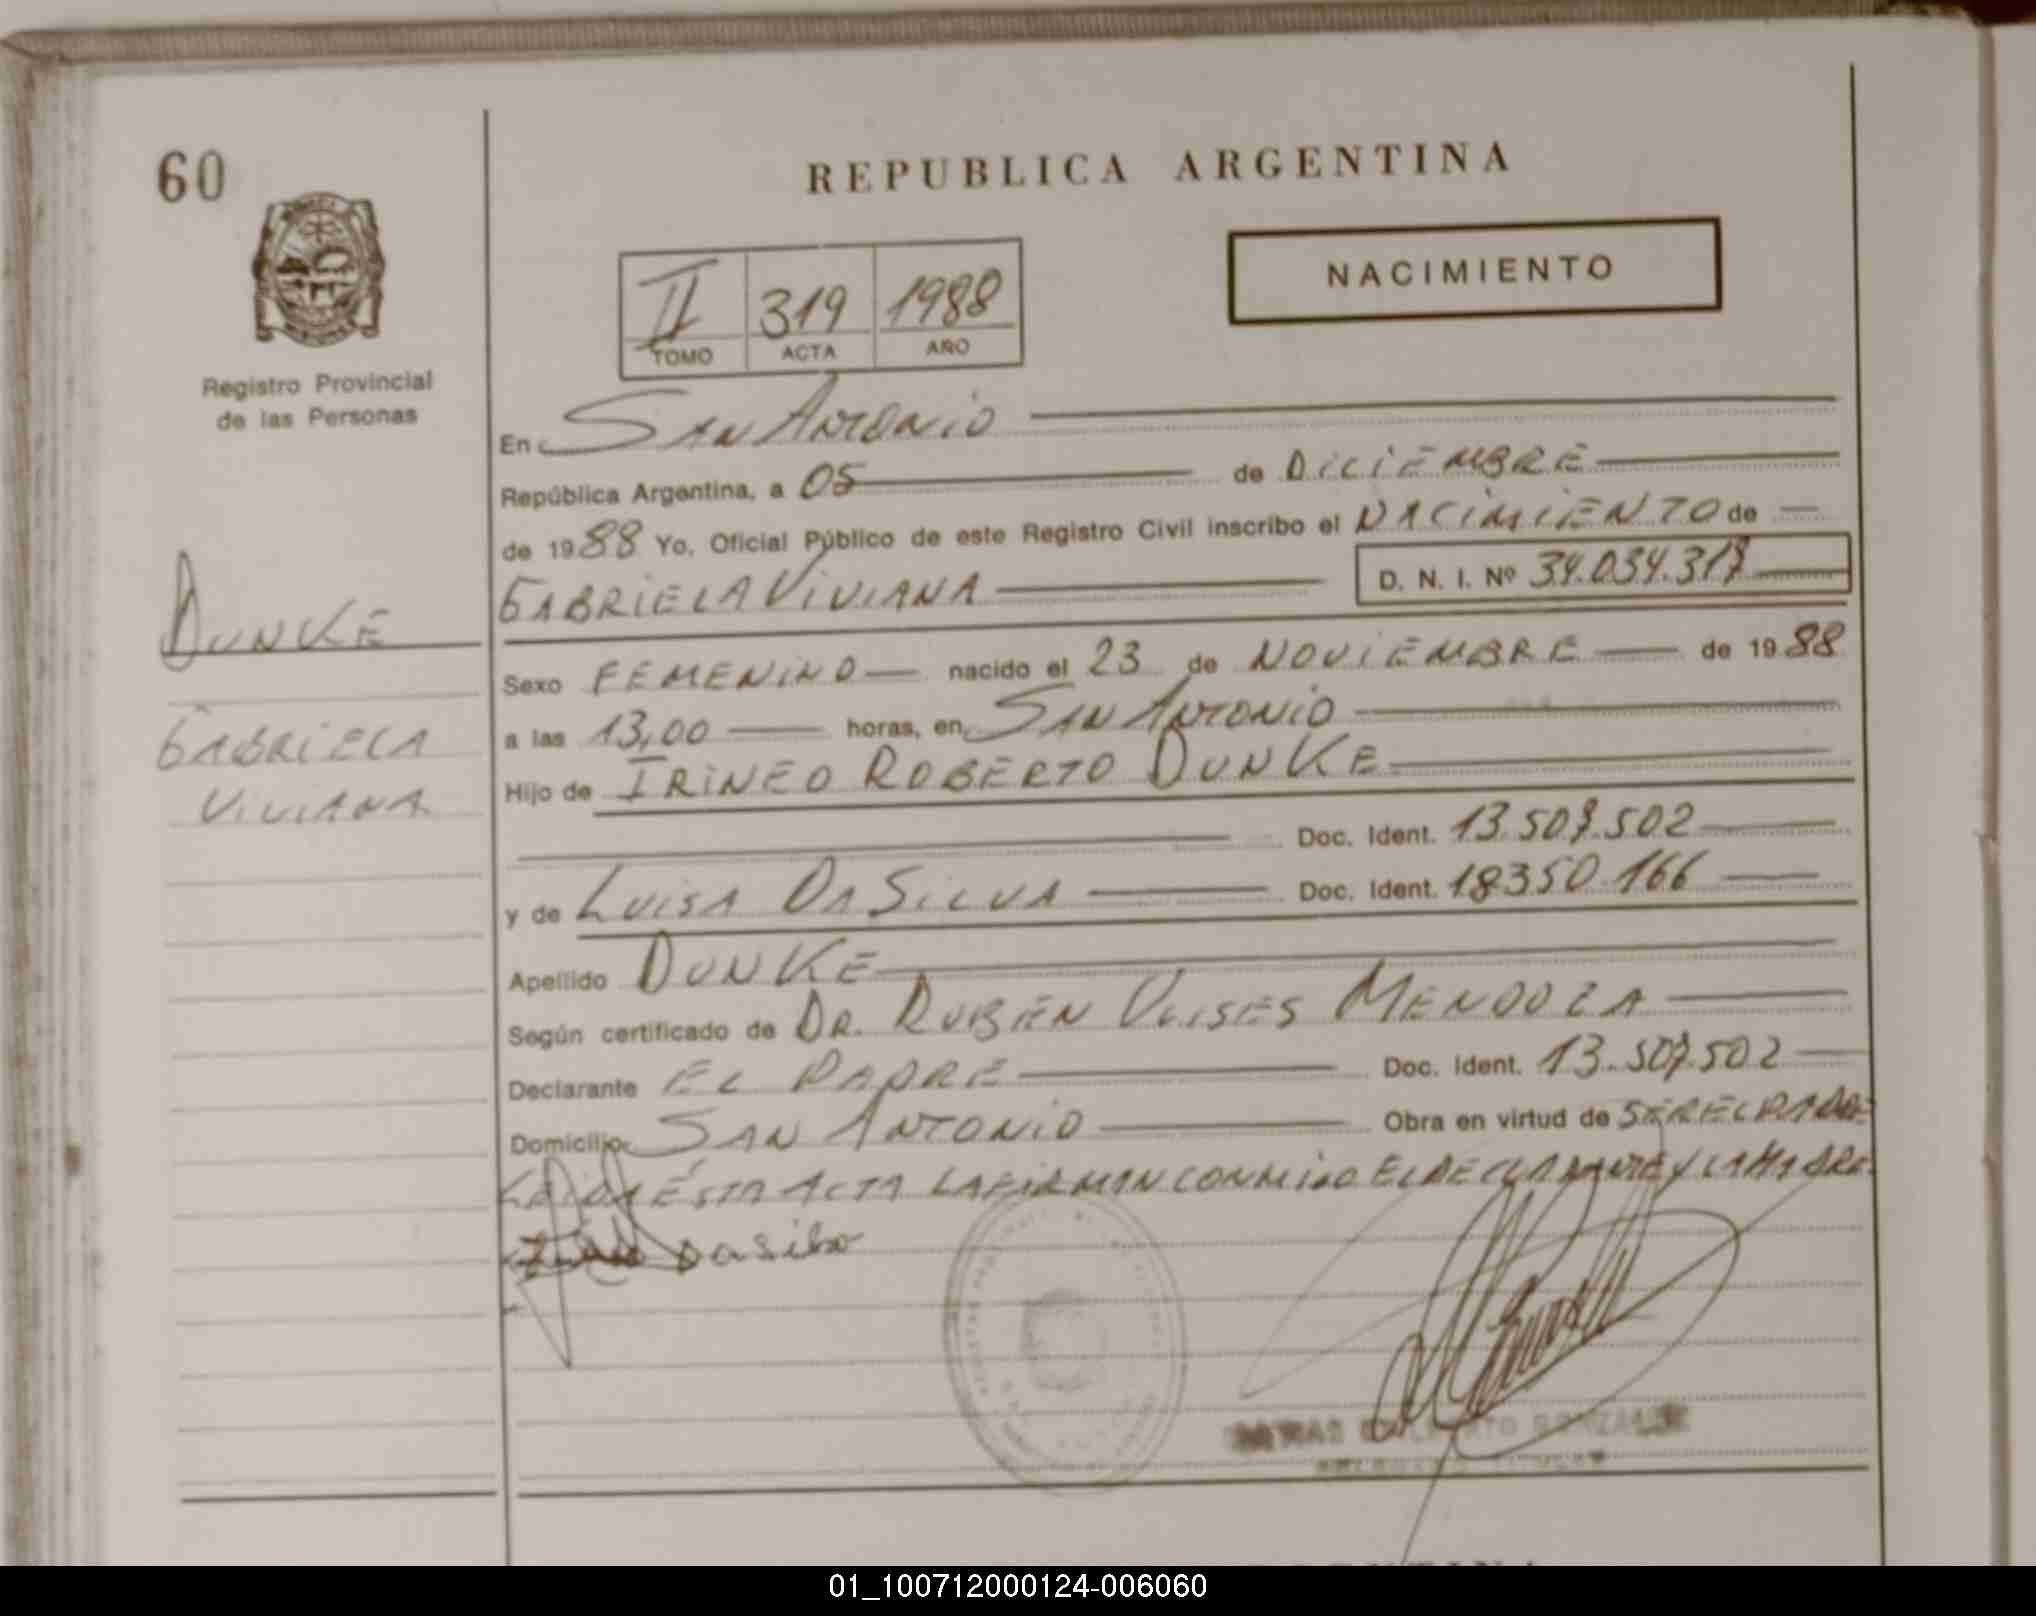 60
REPUBLICA ARGENTINA
NACIMIENTO
II 319 1988
TOMO ACTA AÑO
Registro Provincial
de las Personas
En SAN ANTONIO
República Argentina, a 05 de DICIEMBRE
de 1988 Yo, Oficial Público de este Registro Civil inscribo el NACIMIENTO de
GABRIELA VIVIANA D. N. I. Nº 34.034.317
DUNKE
GABRIELA
VIVIANA
Sexo FEMENINO nacido el 23 de NOVIEMBRE de 1988
a las 13,00 horas, en SAN ANTONIO
Hijo de IRINEO ROBERTO DUNKE
Doc. Ident. 13.507.502
y de LUISA DA SILVA Doc. Ident. 18350.166
Apellido DUNKE
Según certificado de DR. RUBEN ULISES MENDOZA
Declarante EL PADRE Doc. Ident. 13.507.502
Domicilio SAN ANTONIO Obra en virtud de SER EL PADRE
LEIDA ESTA ACTA LA FIRMAN CONMIGO EL DECLARANTE Y LA MADRE.
GONZALEZ
01_100712000124-006060